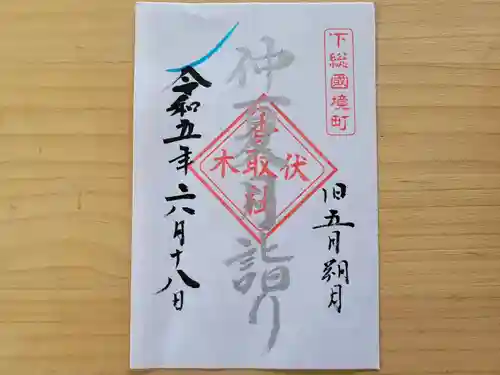 下総國境町
旧五月朔月
仲夏月詣り
伏木
香取社
令和五年六月十八日